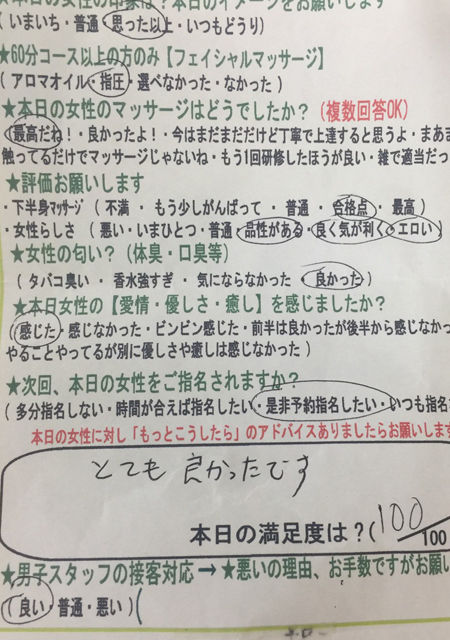 ★本日の女性の印象は？本日のイメージをお願いします
（いまいち・普通・思った以上・いつもどうり）
★60分コース以上の方のみ【フェイシャルマッサージ】
（アロマオイル・指圧・選べなかった・なかった）
★本日の女性のマッサージはどうでしたか？（複数回答OK）
（最高だね！・良かったよ！・今はまだまだだけど丁寧で上達すると思うよ・まあま
触ってるだけでマッサージじゃないね・もう1回研修したほうが良い・雑で適当だっ
★評価お願いします
・下半身マッサージ（不満 ・ もう少しがんばって ・ 普通 ・ 合格点 ・ 最高）
・女性らしさ（悪い・いまひとつ・普通・品性がある・良く気が利く・エロい）
★女性の匂い？（体臭・口臭等）
（タバコ臭い ・ 香水強すぎ ・ 気にならなかった ・ 良かった）
★本日女性の【愛情・優しさ・癒し】を感じましたか？
（感じた・感じなかった・ビンビン感じた・前半は良かったが後半から感じなかっ
やることやってるが別に優しさや癒しは感じなかった）
★次回、本日の女性をご指名されますか？
（多分指名しない・時間が合えば指名したい・是非予約指名したい・いつも指名
本日の女性に対し「もっとこうしたら」のアドバイスありましたらお願いします
とても良かったです
本日の満足度は？（100/100
★男子スタッフの接客対応 → ★悪いの理由、お手数ですがお願い
（良い・普通・悪い）（